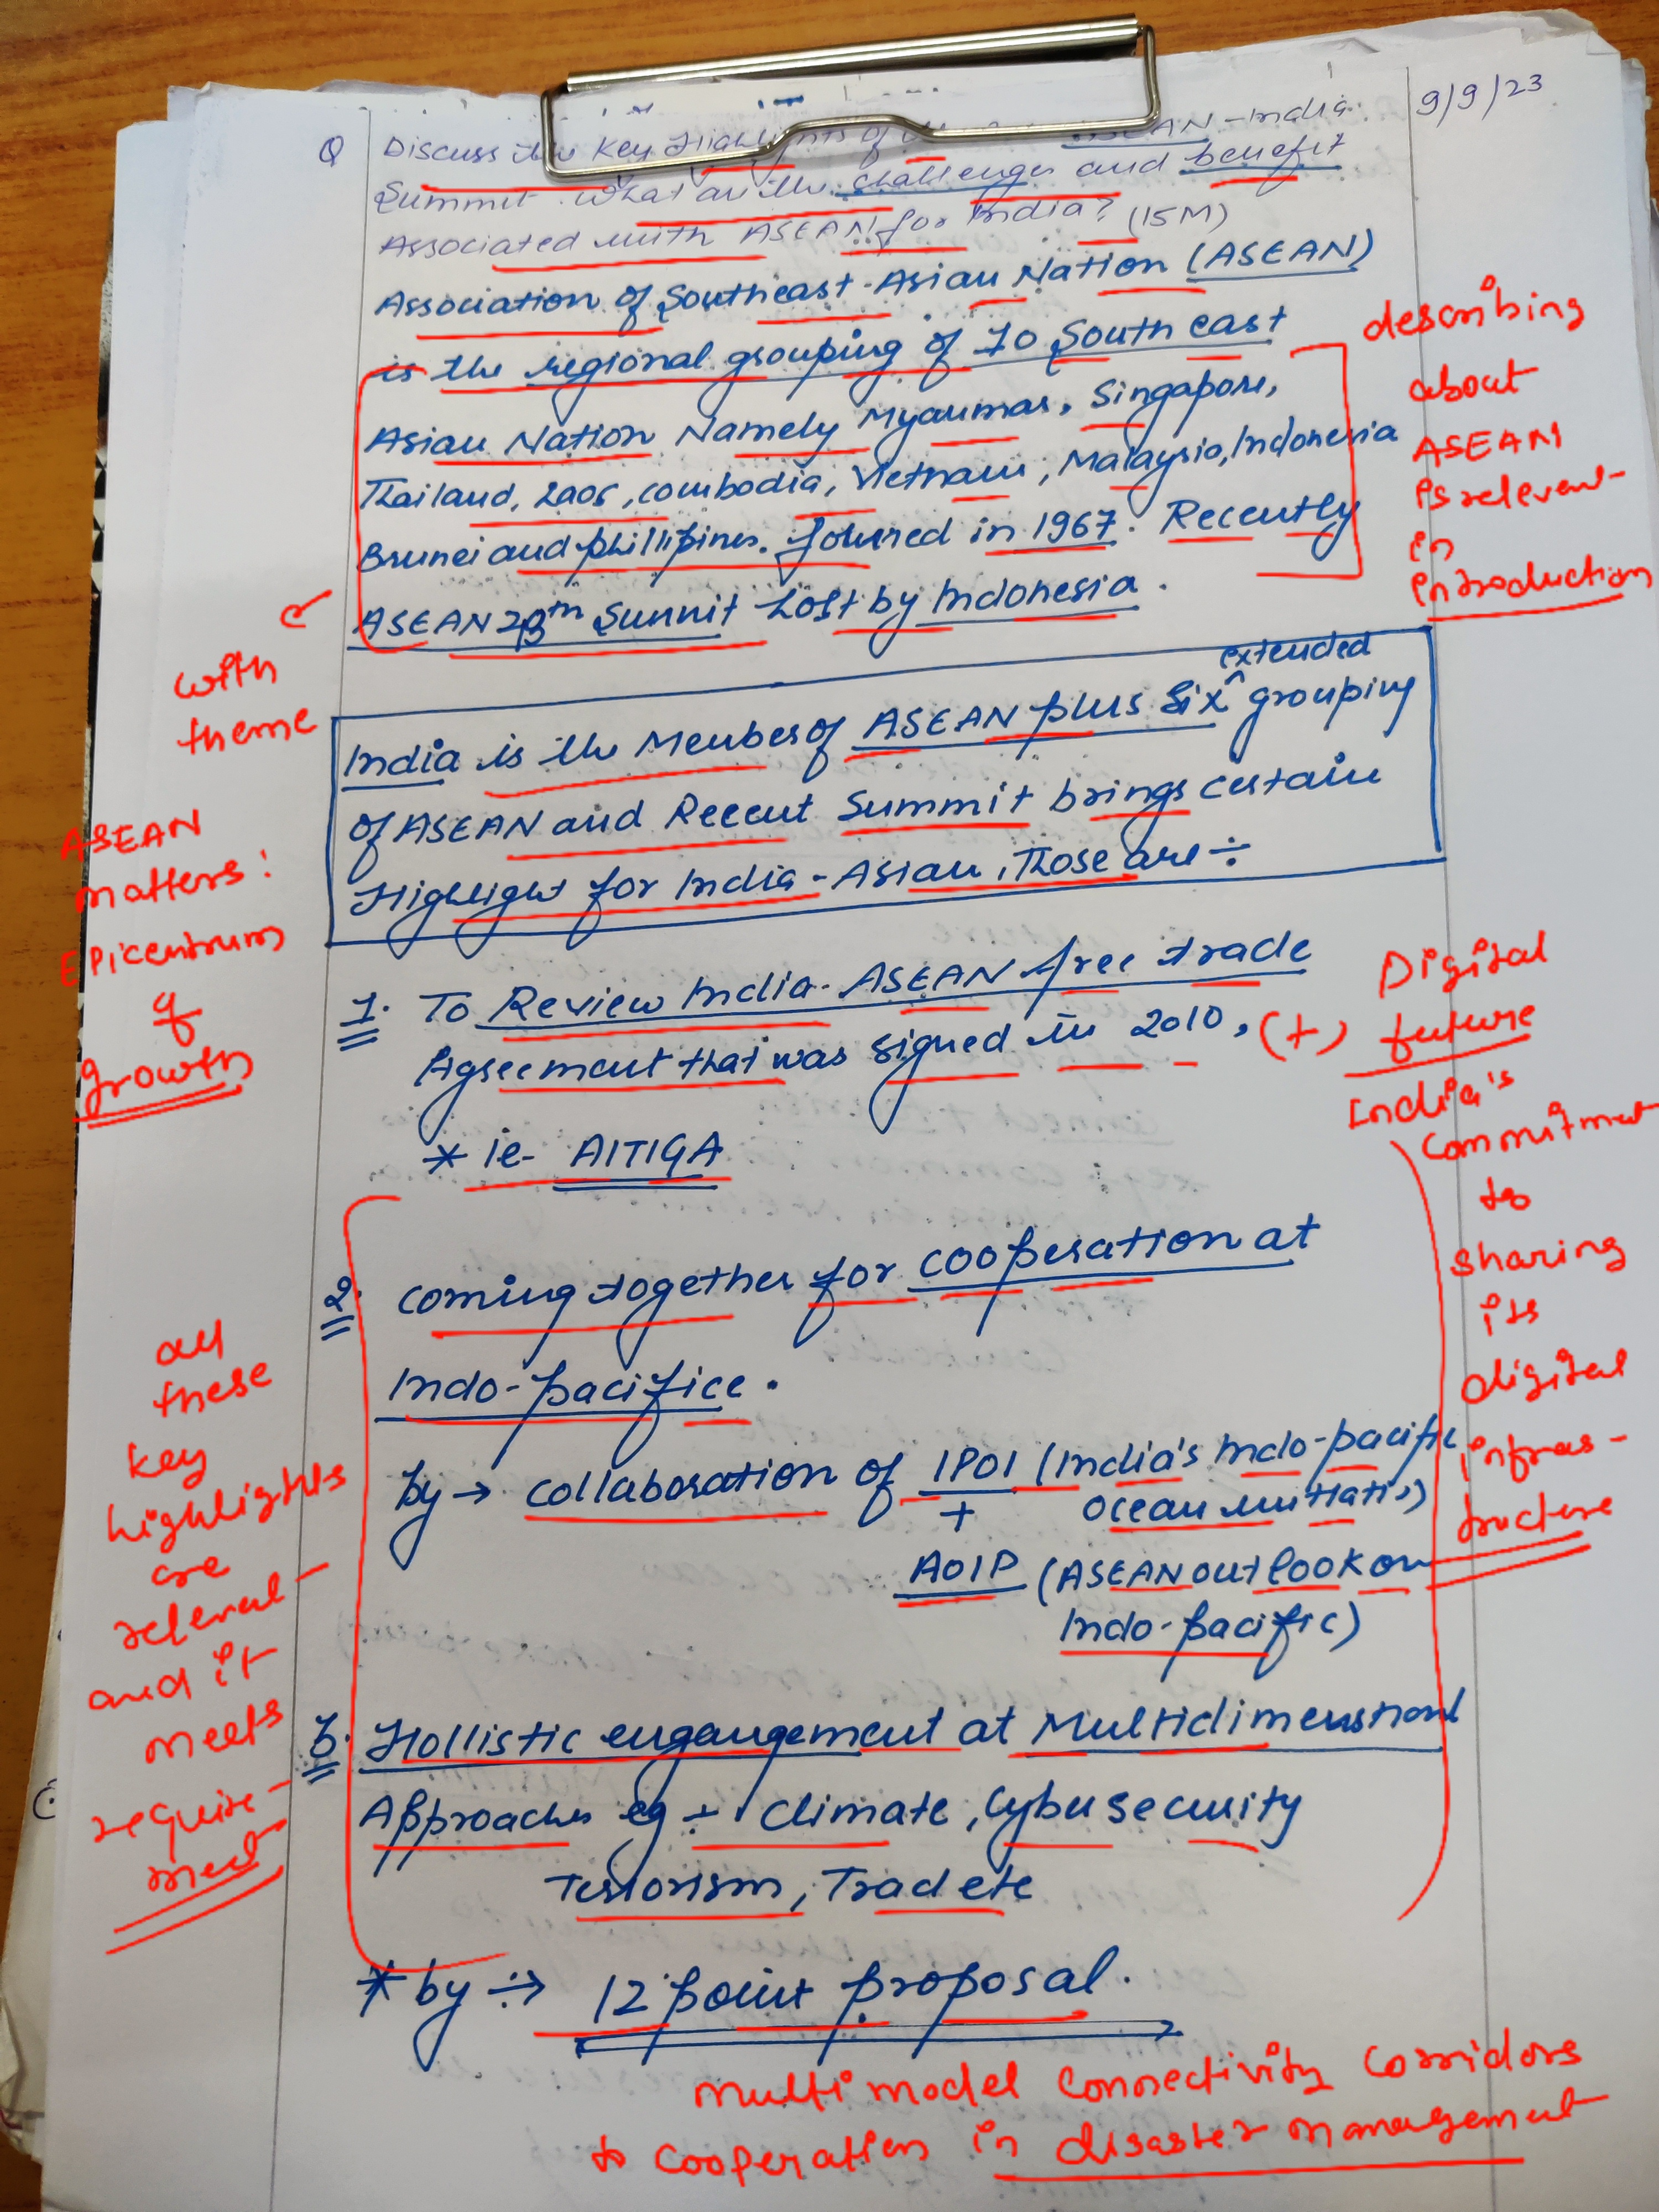 9/9/23
Q Discuss the Key Highlights of ASEAN-India
Summit. What are the challenges and benefit
Associated with ASEAN for India? (15M)
Association of Southeast-Asian Nation (ASEAN)
is the regional grouping of 10 South east
Asian Nation Namely Myanmar, Singapore,
Thailand, Laos, combodia, Vietnam, Malaysia, Indonesia
Brunei and phillipines. formed in 1967. Recently
ASEAN Summit Host by Indonesia.
describing
about
ASEAN
is relevent
in
introduction
with
theme
ASEAN
matters:
Epicentrum
of
growth
extended
India is the Member of ASEAN plus Six ^ grouping
of ASEAN and Recent Summit brings certain
Highlight for India-Asian, Those are ÷
1. To Review India-ASEAN free trade
Agreement that was signed in 2010,
* ie- AITIGA
(+) Digital
future
India's
commitment
to
sharing
its
digital
infras-
tructure
2. coming together for cooperation at
Indo-pacifice.
by → collaboration of IPOI (India's Indo-pacific
+ Ocean initiative)
AOIP (ASEAN outlook on
Indo-pacific)
3. Hollistic engangement at Multidimenstional
Approaches eg ÷ climate, Cyber security
Terrorism, Trad etc
* by ÷→ 12 point proposal.
all
these
key
highlights
are
relevent
and it
meets
require-
ment
multi model connectivity corridors
to cooperation in disaster management